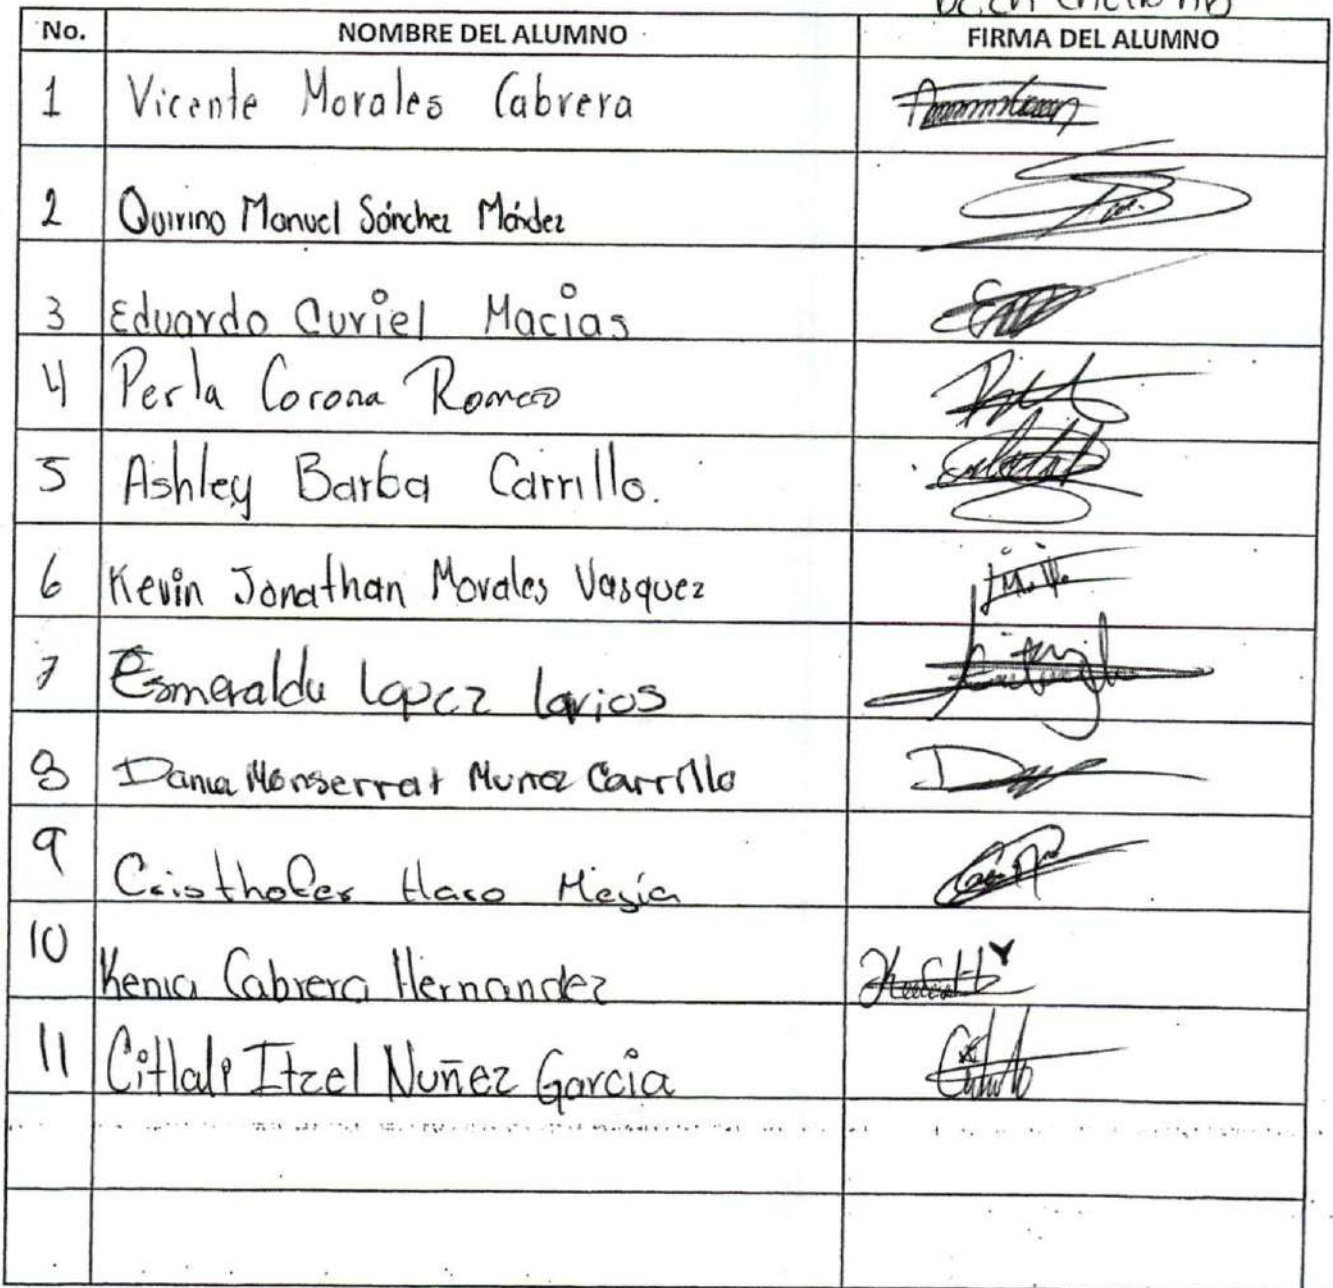 No. NOMBRE DEL ALUMNO FIRMA DEL ALUMNO
1 Vicente Morales Cabrera
2 Quirino Manuel Sánchez Méndez
3 Eduardo Curiel Macias
4 Perla Corona Romero
5 Ashley Barba Carrillo.
6 Kevin Jonathan Morales Vasquez
7 Esmeralda Lopez Larios
8 Dania Monserrat Muñoz Carrillo
9 Cristhofer Haro Mejía
10 Kenia Cabrera Hernandez
11 Citlali Itzel Nuñez Garcia